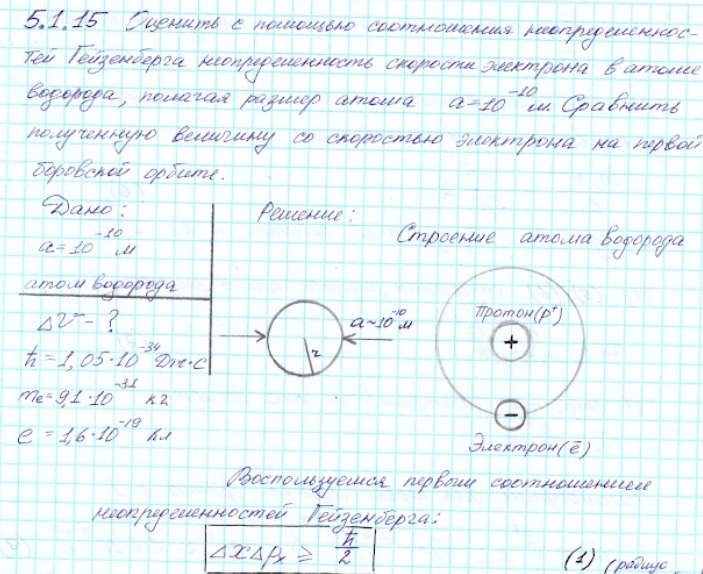 5.1.15 Оценить с помощью соотношения неопределеннос-
тей Гейзенберга неопределенность скорости электрона в атоме
водорода, полагая размер атома a=10⁻¹⁰ м. Сравнить
полученную величину со скоростью электрона на первой
боровской орбите.
Дано:
a=10⁻¹⁰ м
атом водорода
ΔV - ?
ħ = 1,05·10⁻³⁴ Дж·с
me=9,1·10⁻³¹ кг
e = 1,6·10⁻¹⁹ Кл
Решение:
Строение атома водорода
a~10⁻¹⁰ м
r
Протон(p⁺)
+
−
Электрон(ē)
Воспользуемся первым соотношением
неопределенностей Гейзенберга:
ΔxΔpₓ ≥ ħ/2
(1) (радиус